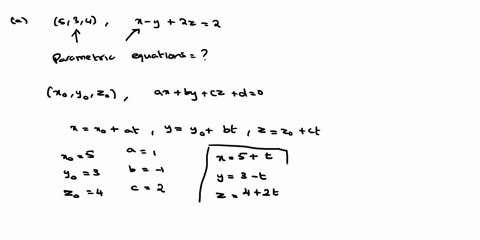 (a) (5,3,4), x-y+2z=2
Parametric equations=?
(x₀,y₀,z₀), ax+by+cz+d=0
x=x₀+at, y=y₀+bt, z=z₀+ct
x₀=5 a=1 x=5+t
y₀=3 b=-1 y=3-t
z₀=4 c=2 z=4+2t